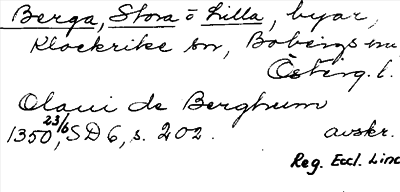 Berga, Stora o Lilla, byar,
Klockrike sn, Bobergs hd
Österg. l.
Olaui de Berghum
1350 23/6, SD 6, s. 202. avskr.
Reg. Eccl. Linc